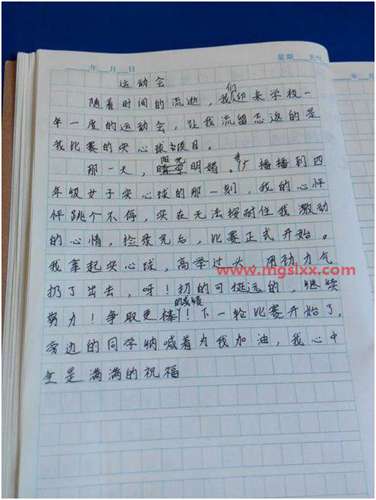 年 月 日
星期
运动会
随着时间的流逝，我们迎来学校一
年一度的运动会，让我流留忘返的是
我比赛的实心球项目。
那一天，阳光明媚。当广播播到四
年级女子实心球的那一刻，我的心怦
怦跳个不停，实在无法按耐住我激动
的心情，检录完后，比赛正式开始。
我拿起实心球，高举过头，用劲力气
扔了出去，呀！扔的可挺远的，继续
努力！争取更棒的成绩！下一轮比赛开始了，
旁边的同学呐喊着为我加油，我心中
全是满满的祝福
www.mgslxx.com